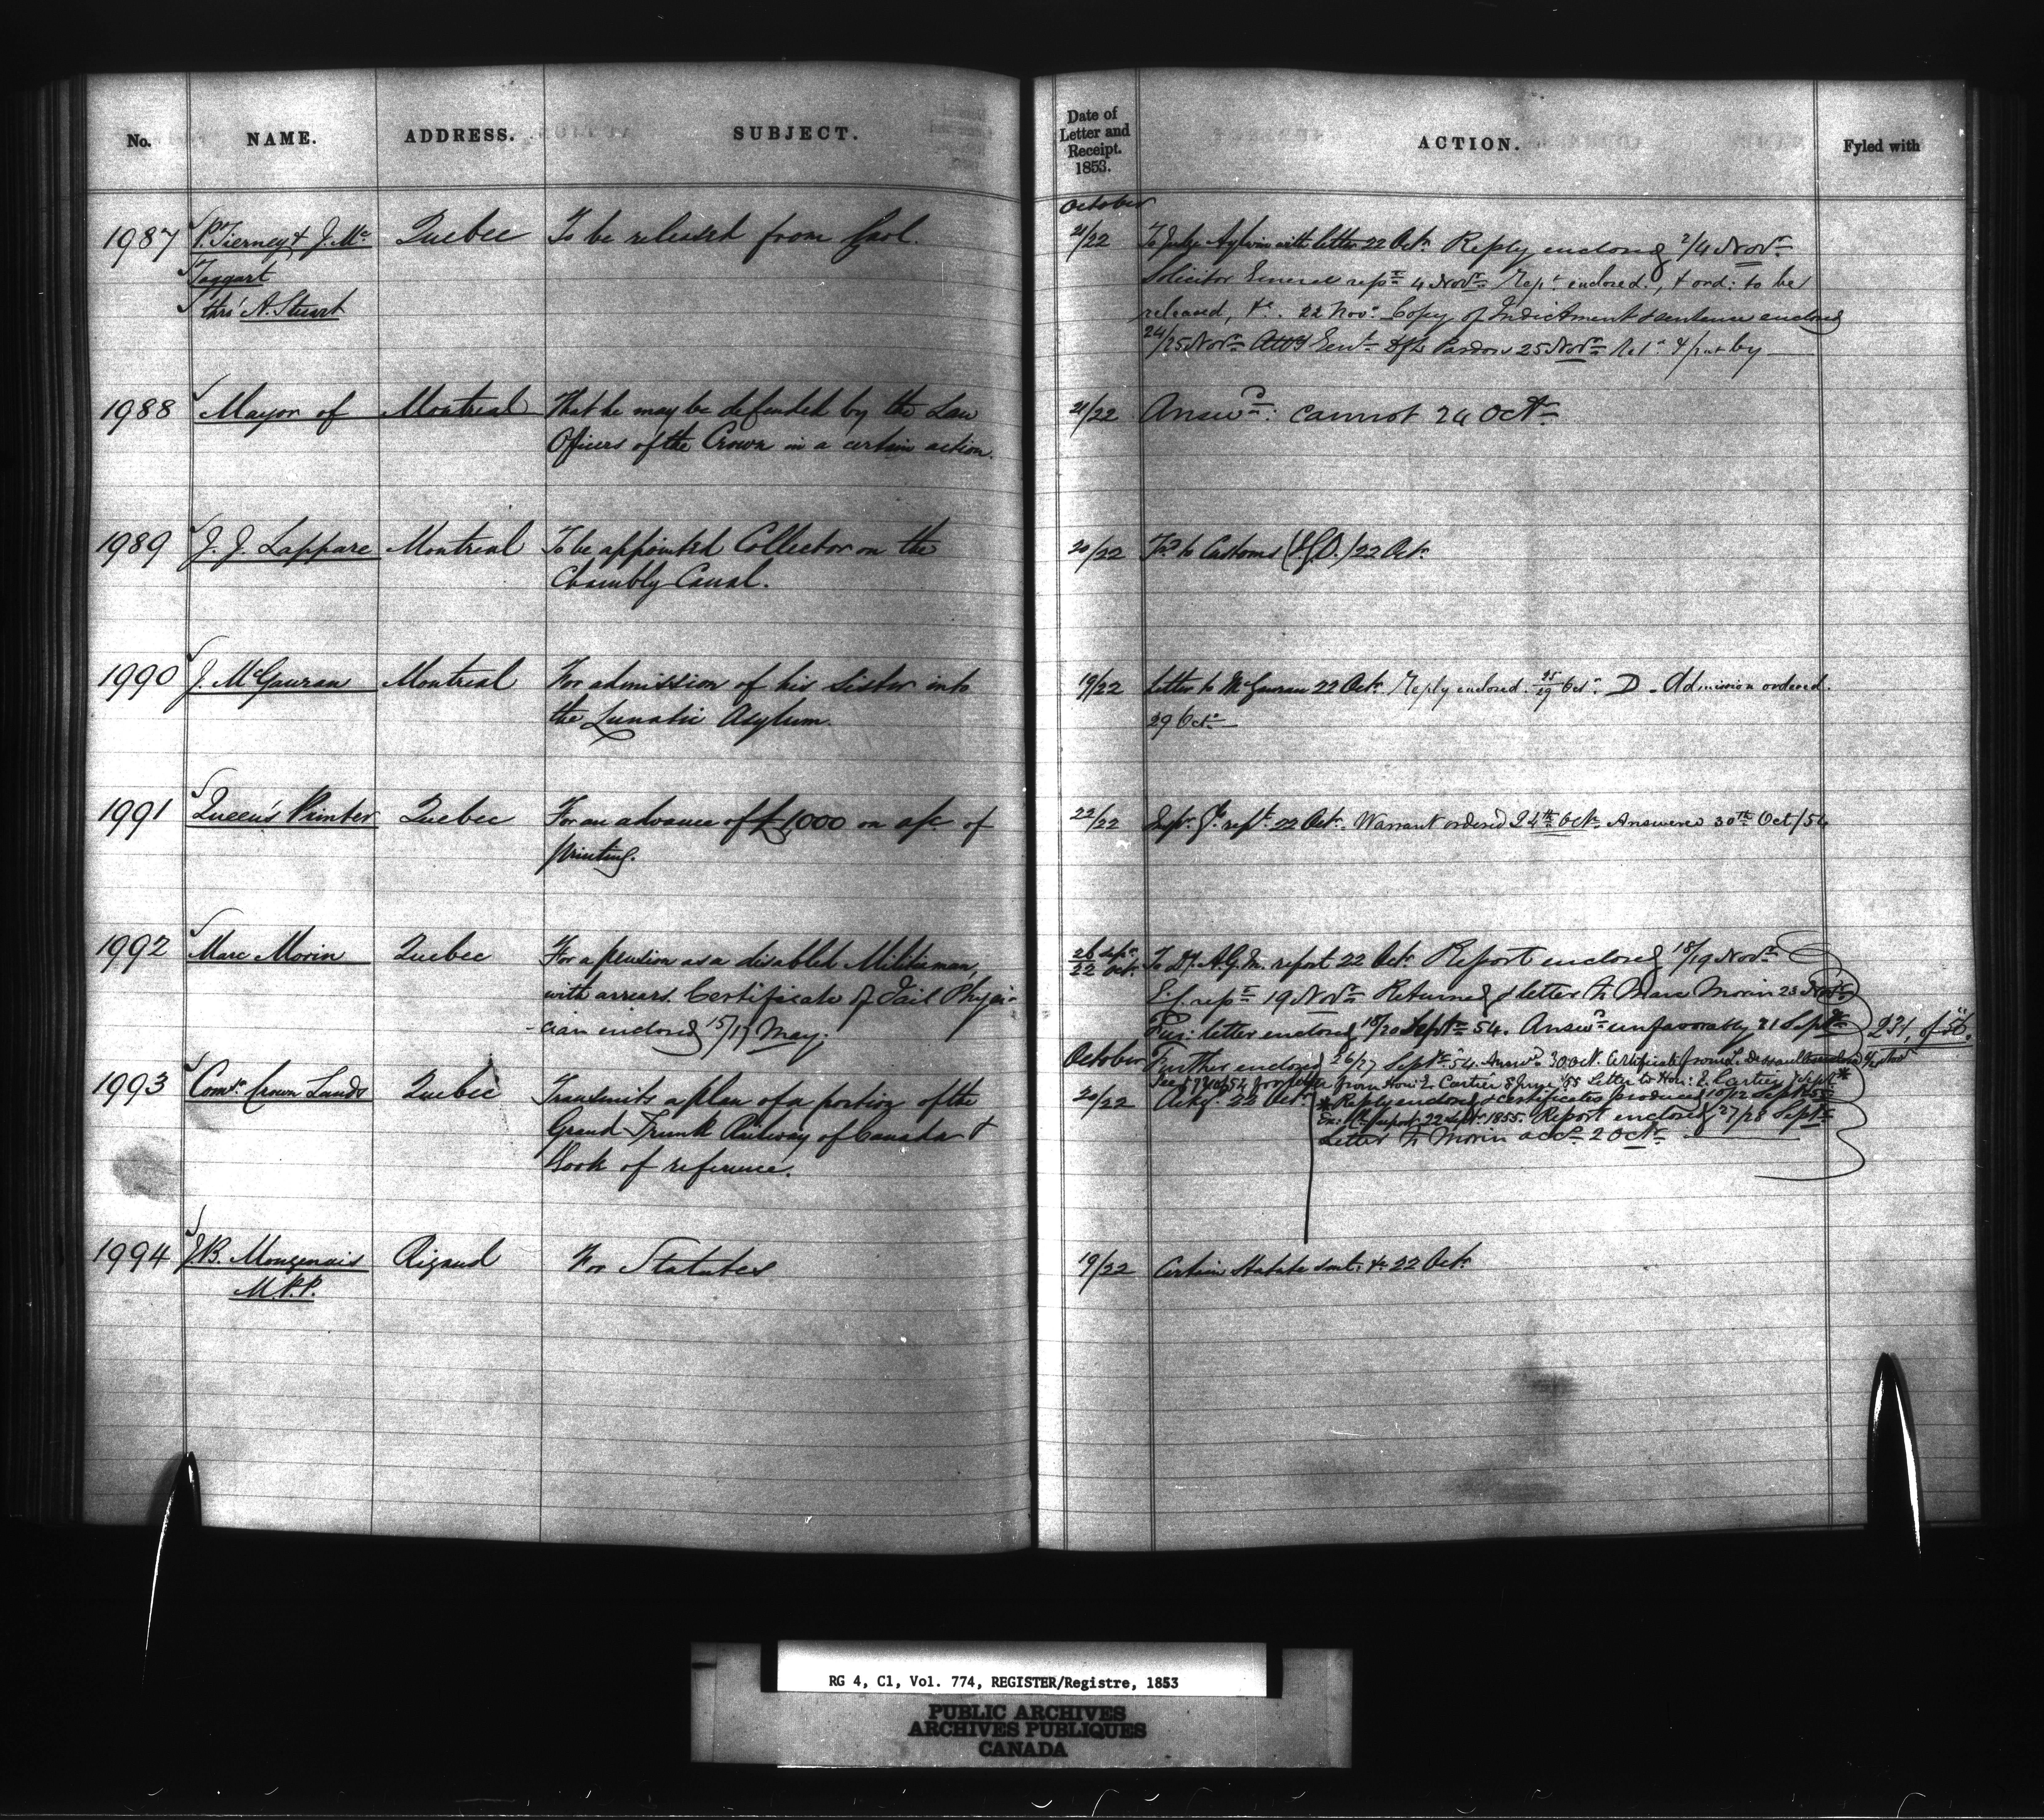 No. NAME. ADDRESS. SUBJECT.
Date of Letter and Receipt. 1853. ACTION. Fyled with
October
1987 P. Tierney & J. Mc Quebec To be released from Gaol. 21/22 To Judge Aylwin with letter 22 Octr. Reply enclosed 2/4 Novr.
Taggart Solicitor General rept 4 Novr. Rept enclosed, & ord: to be
thro' A. Stuart released, &c. 22 Novr. Copy of Indictment & sentence enclosed
24/25 Novr. Atty Genl. Dft Pardon 25 Novr. Retd & put by
1988 Mayor of Montreal That he may be defended by the Law 21/22 Answd: cannot 24 Octr.
Officers of the Crown in a certain action.
1989 J. J. Lappare Montreal To be appointed Collector on the 20/22 to Customs 22 Octr.
Chambly Canal.
1990 J. McGauran Montreal For admission of his Sister into 19/22 Letter to McGauran 22 Octr. Reply enclosed 25/29 Octr. D. Admission ordered.
the Lunatic Asylum. 29 Octr.
1991 Queen's Printer Quebec For an advance of £1000 on a/c of 22/22 rept. 22 Octr. Warrant ordered 24th Octr. Answered 30th Oct/54
printing.
1992 Marc Morin Quebec For a pension as a disabled Militiaman, 26 Sepr. 22 Octr. To Dy. A.G.M. report 22 Octr. Report enclosed 18/19 Novr.
with arrears. Certificate of Jail Physi- rept 19 Novr. Returned & letter to Marc Morin 23 Novr.
-cian enclosed 15/17 May. letter enclosed 18/20 Septr. 54. Answd unfavorably 21 Septr. 231, of 56.
October Further enclosed 26/27 Septr. 54. Answd. 30 Oct. Certificate from
for letter from Hon: E. Cartier 8 June '55 Letter to Hon: E. Cartier 7 Septr. *
1993 Comr. Crown Lands Quebec Transmits a plan of a portion of the 20/22 Ackgd. 22 Octr. * Reply enclosed & certificates produced 10/12 Septr. 55
Grand Trunk Railway of Canada & report 22 Septr. 1855. Report enclosed 27/28 Septr.
Book of reference. Letter to Morin 2 Octr.
1994 J.B. Mongenais Rigaud For Statutes 19/22 Certain Statutes sent, &c 22 Octr.
M.P.P.
RG 4, C1, Vol. 774, REGISTER/Registre, 1853
PUBLIC ARCHIVES
ARCHIVES PUBLIQUES
CANADA